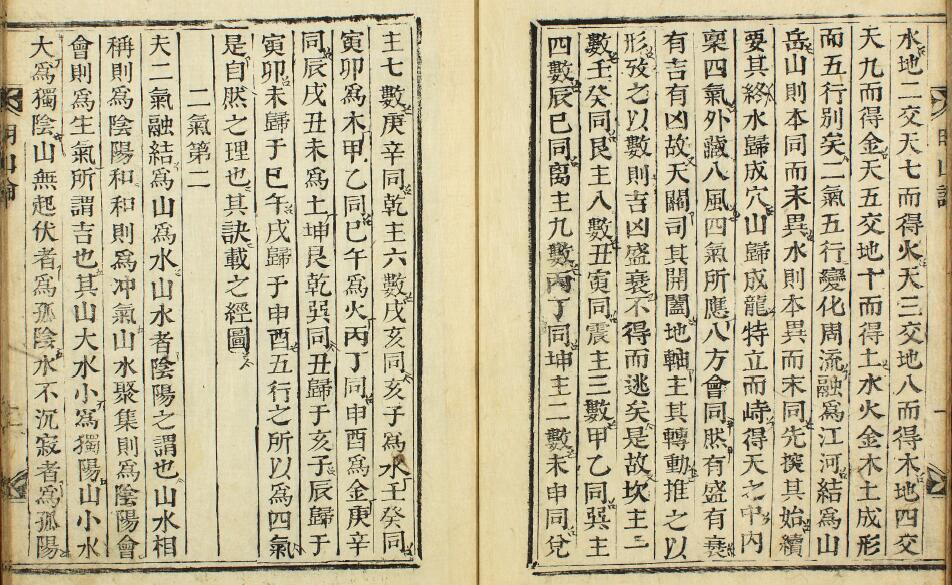 水地二交天七而得火天三交地八而得木地四交
天九而得金天五交地十而得土水火金木土成形
而五行別矣二氣五行變化周流融爲江河結爲山
岳山則本同而末異水則本異而末同先揆其始續
要其終水歸成穴山歸成龍特立而峙得天之中内
稟四氣外藏八風四氣所應八方會同然有盛有衰
有吉有凶故天關司其開闔地軸主其轉動推之以
形攷之以數則吉凶盛衰不得而逃矣是故坎主
數壬癸同艮主八數丑寅同震主三數甲乙同巽主
四數辰巳同离主九數丙丁同坤主二數未申同兌
主七數庚辛同乾主六數戌亥同亥子爲水壬癸同
寅卯爲木甲乙同巳午爲火丙丁同申酉爲金庚辛
同辰戌丑未爲土坤艮乾巽同丑歸于亥子辰歸于
寅卯未歸于巳午戌歸于申酉五行之所以爲四氣
是自然之理也其訣載之經圖
二氣第二
夫二氣融結爲山爲水山水者陰陽之謂也山水相
稱則爲陰陽和和則爲冲氣山水聚集則爲陰陽會
會則爲生氣所謂吉也其山大水小爲獨陽山小水
大爲獨陰山無起伏者爲孤陰水不沉寂者爲孤陽